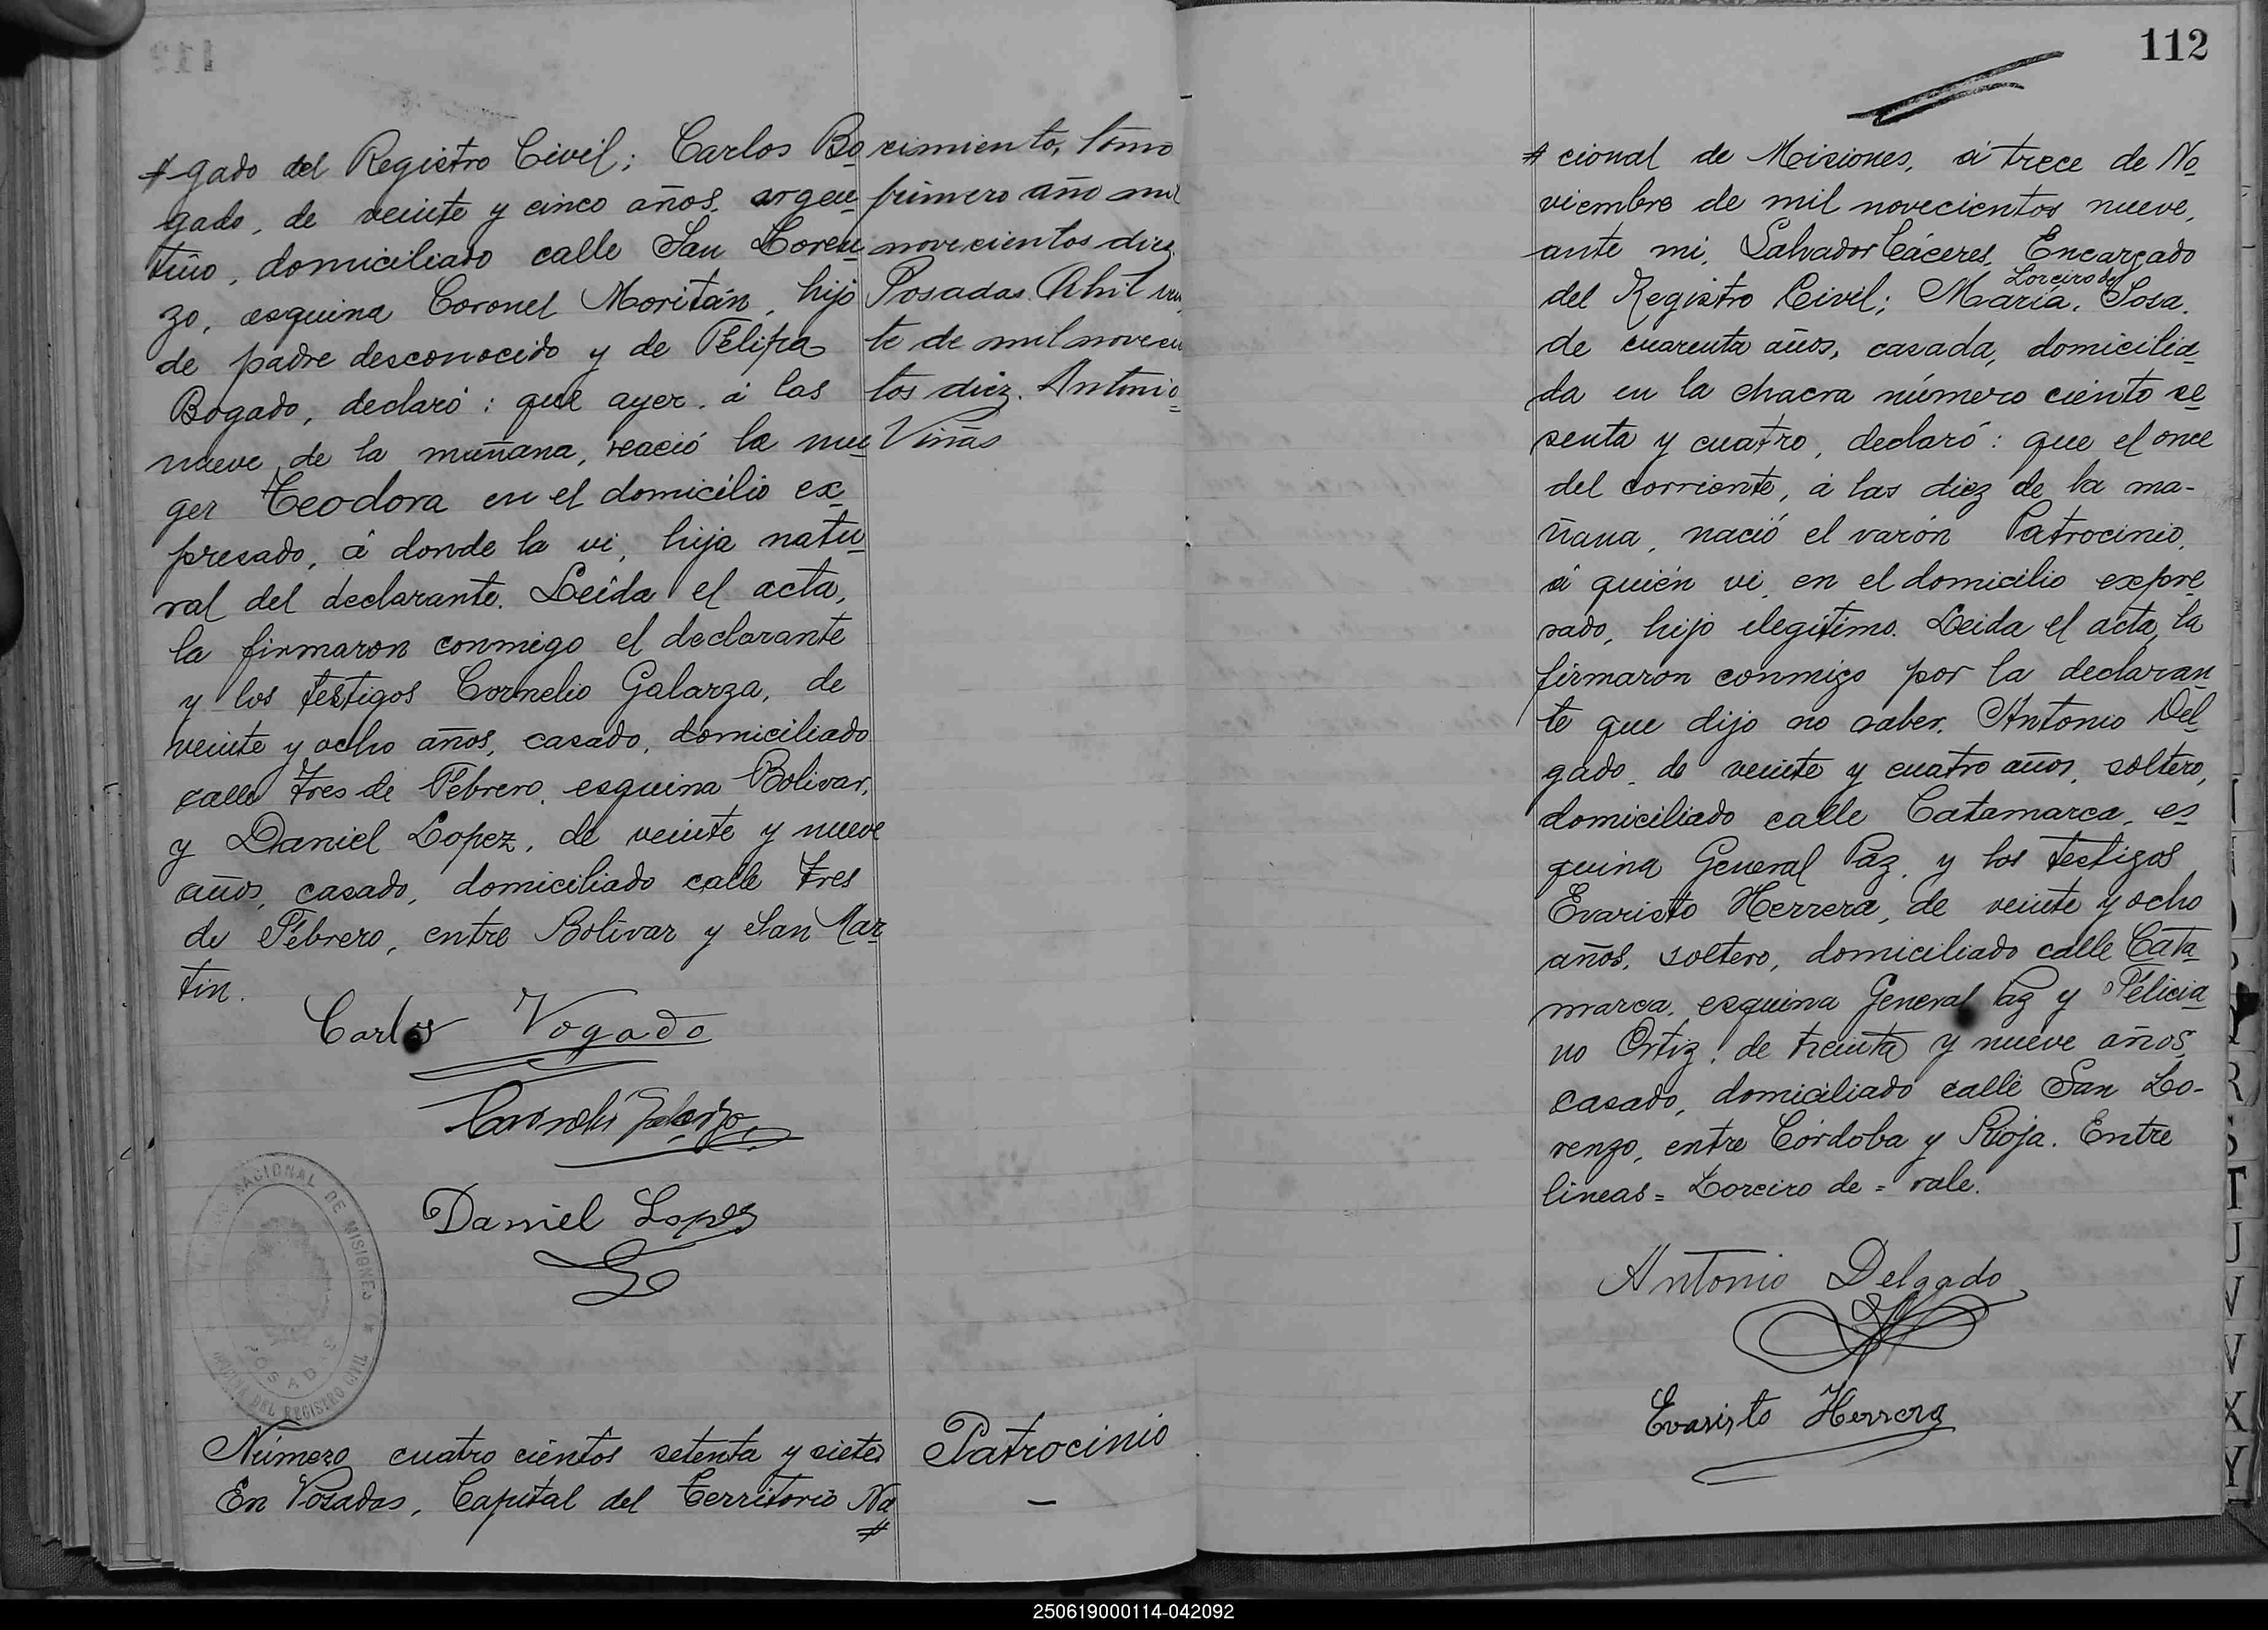 # gado del Registro Civil; Carlos Bo
gado, de veinte y cinco años, argen
tino, domiciliado calle San Loren
zo, esquina Coronel Moritán, hijo
de padre desconocido y de Felipa
Bogado, declaró: que ayer, á las
nueve de la mañana, nació la mu
ger Teodora en el domicilio ex
presado, á donde la vi, hija natu
ral del declarante. Leída el acta,
la firmaron conmigo el declarante
y los testigos Cornelio Galarza, de
veinte y ocho años, casado, domiciliado
calle Tres de Febrero, esquina Bolivar,
y Daniel Lopez, de veinte y nueve
años, casado, domiciliado calle Tres
de Febrero, entre Bolívar y San Mar
tin.
Carlos Vogado
Cornelio Galarza
Daniel Lopez
NACIONAL DE MISIONES
POSADAS
OFICINA DEL REGISTRO CIVIL
Número cuatro cientos setenta y siete
En Posadas, Capital del Territorio Na
#
cimiento, tomo
primero año mil
novecientos diez.
Posadas Abril vein
te de mil novecien
tos diez. Antonio
Viñas
Patrocinio
—
112
# cional de Misiones, á trece de No
viembre de mil novecientos nueve,
ante mi, Salvador Cáceres, Encargado
Loreiro de
del Registro Civil; María, Sosa,
de cuarenta años, casada, domicilia
da en la chacra número ciento se
senta y cuatro, declaró: que el once
del corriente, á las diez de la ma-
ñana, nació el varón Patrocinio,
á quién vi, en el domicilio expre
sado, hijo elegítimo. Leida el acta, la
firmaron conmigo por la declaran
te que dijo no saber, Antonio Del
gado, de veinte y cuatro años, soltero,
domiciliado calle Catamarca, es
quina General Paz, y los testigos
Evaristo Herrera, de veinte y ocho
años, soltero, domiciliado calle Cata
marca, esquina General Paz y Felicia
no Ortiz, de treinta y nueve años,
casado, domiciliado calle San Lo-
renzo, entre Córdoba y Rioja. Entre
lineas = Loreiro de = vale.
Antonio Delgado
Evaristo Herrera
T
R
S
T
U
V
V
X
Y
250619000114-042092